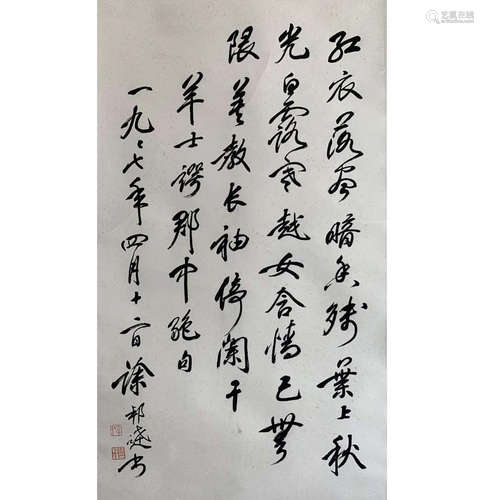 红衣落尽暗香残叶上秋
光白露寒越女含情已无
限莫教长袖倚阑干
羊士谔郡中绝句
一九八七年四月十二日徐邦达书